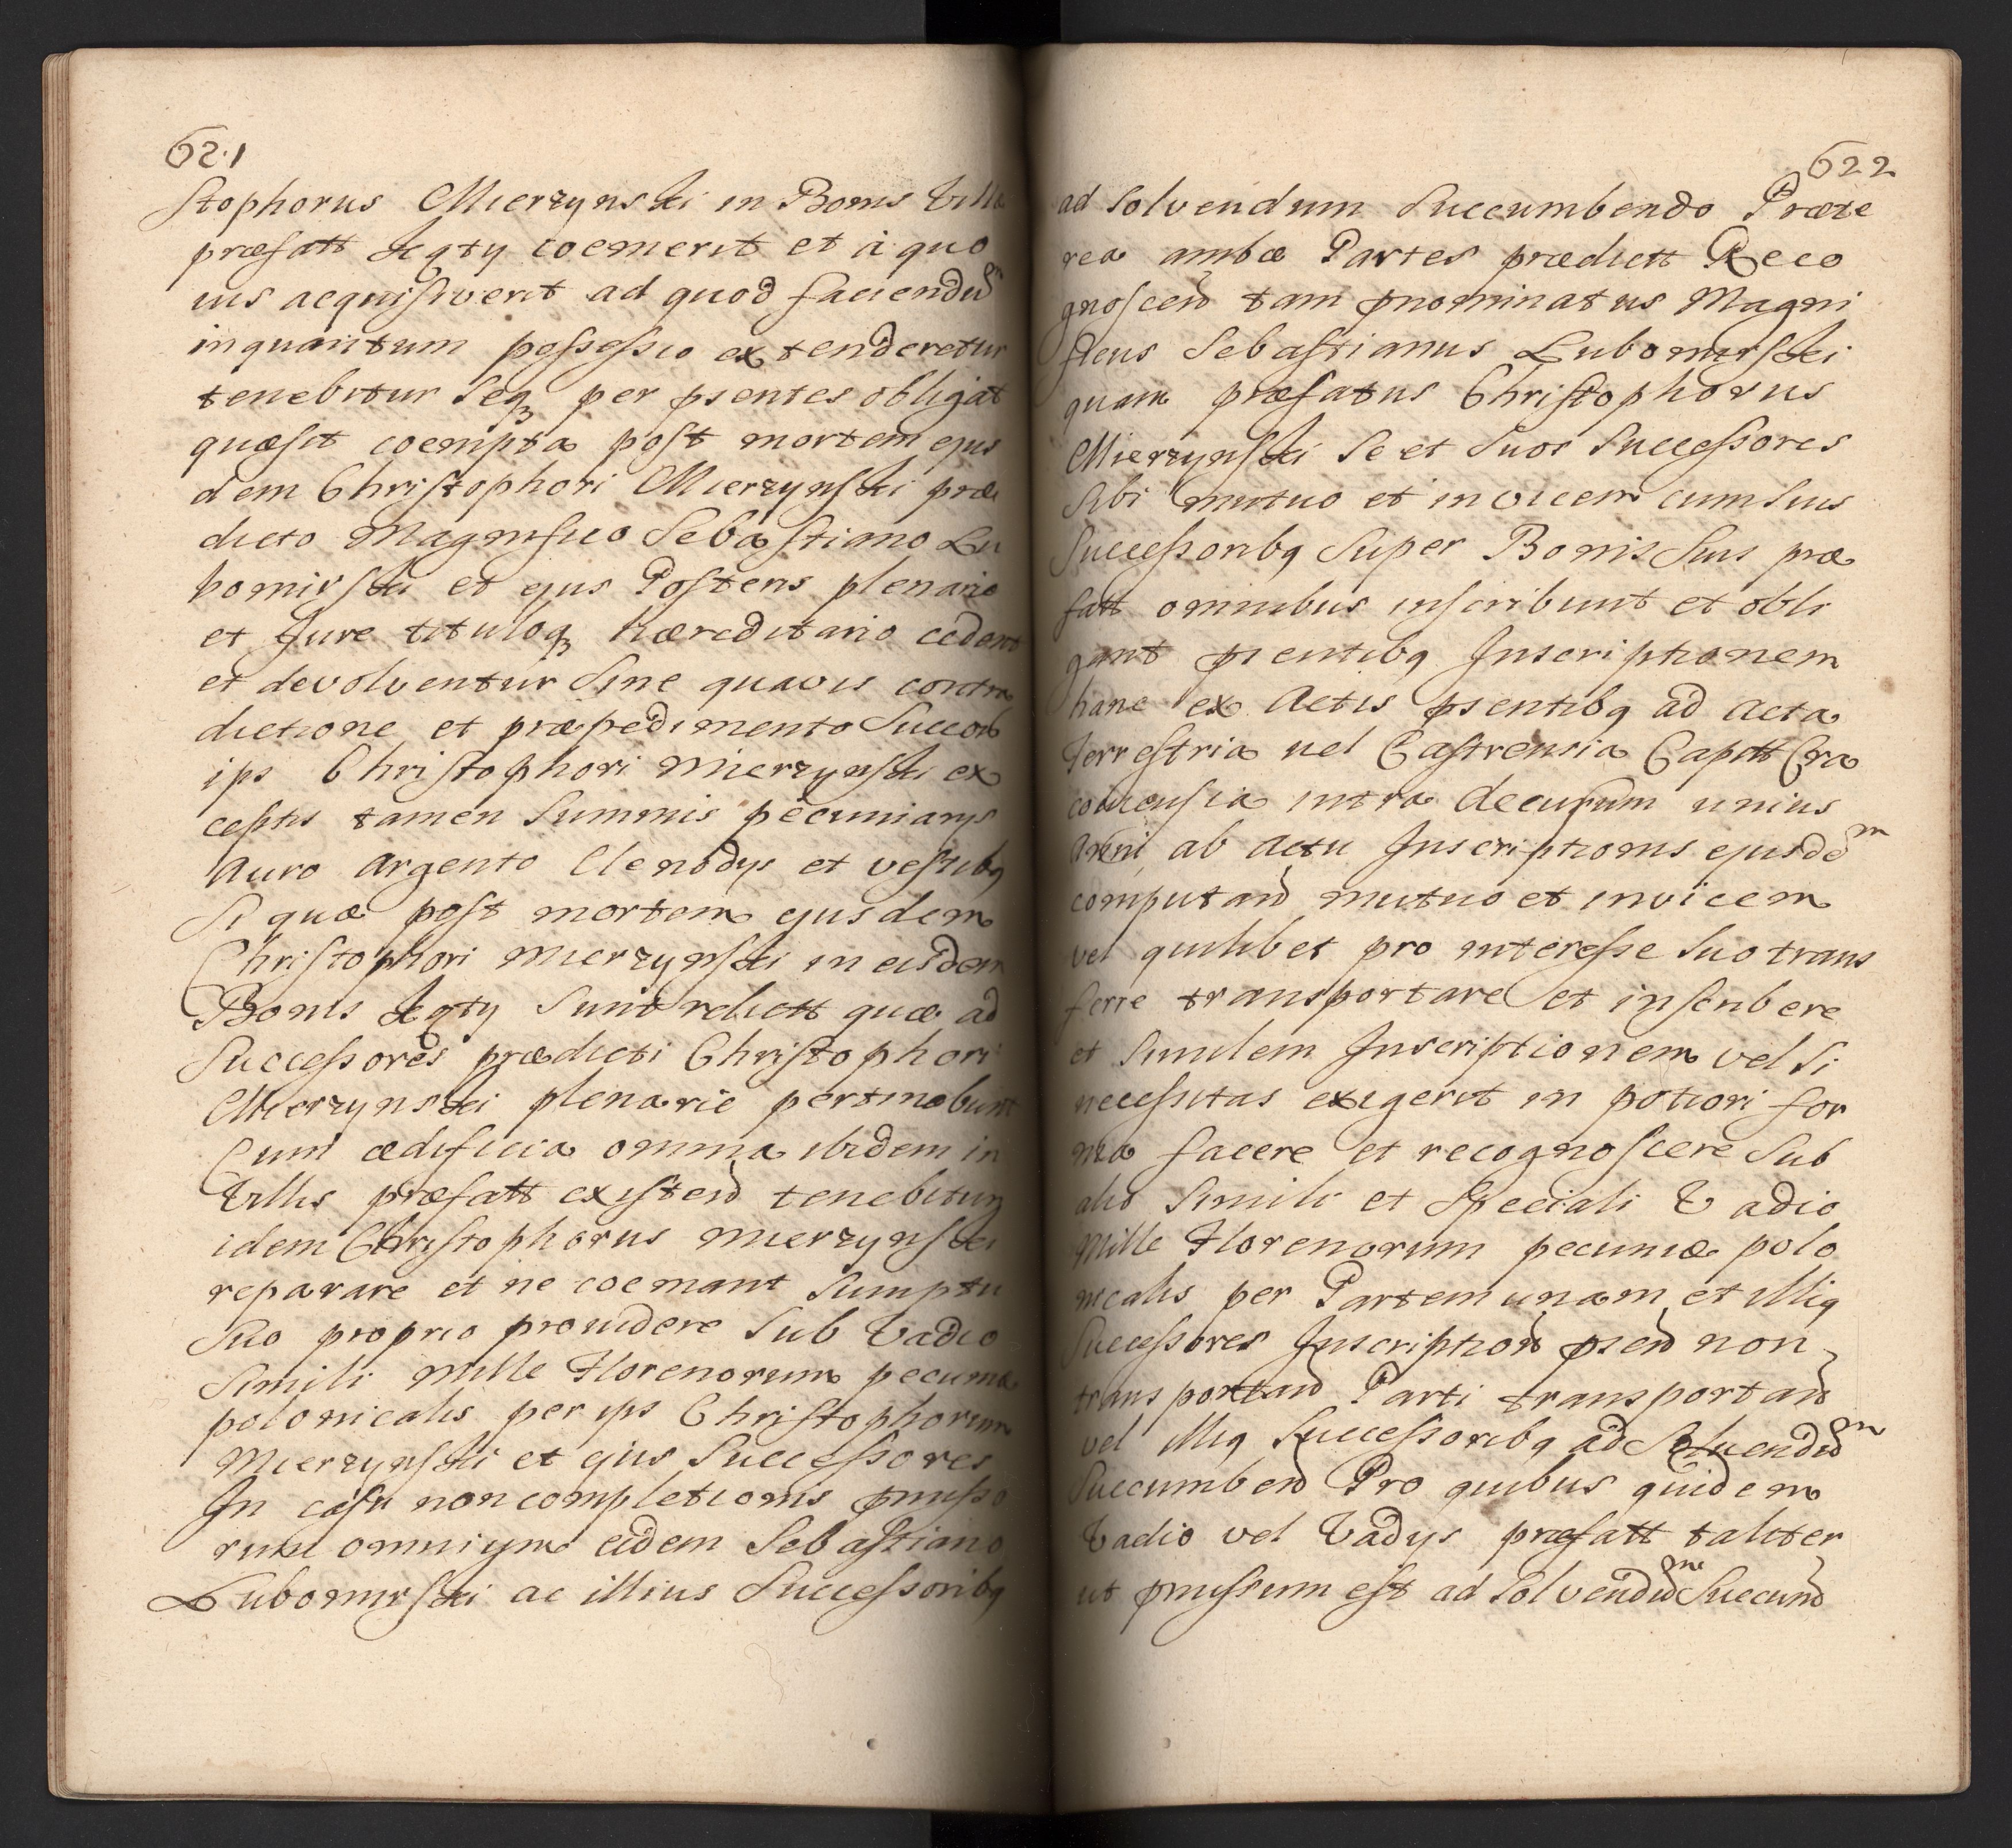 621
stophorus Mierzynski in Bonis Villa
præfatt Łęgty coemerit et à quo
uis acquisiverit ad quod faciendum
inquantum possessio extenderetur
tenebitur seq per psentes obligat
quæsit coempta post mortem ejus
dem Christophori Mierzynski præ
dicto Magnifico Sebastiano Lu
bomirski et ejus Posteris plenarie
et Jure tituloq hæreditario cedent
et devolventur sine quavis contra
dictione et præpedimento Succorb
ips Christophori Mierzynski ex
ceptis tamen summis pecuniarys
auro argento Clenodys et vestibq
si quæ post mortem ejusdem
Christophori Mierzynski in eisdem
Bonis Łęgty sunt relictt quæ ad
Successores prædicti Christophori
Mierzynski plenarie pertinebunt
Cum ædificia omnia ibidem in
Villis præfatt existen tenebitur
idem Christophorus Mierzynski
reparare et ne coemant sumptu
suo proprio providere sub Vadio
simili mille Florenorum pecuniæ
polonicalis per ips Christophorum
Mierzynski et ejus Successores
In casu non completionis pmisso
rum omnium eidem Sebastiano
Lubomirski ac illius Successoribq
622
ad solvendum succumbendo Præte
rea ambæ Partes prædictt Reco
gnoscen tam pnominatus Magni
ficus Sebastianus Lubomirski
quam præfatus Christophorus
Mierzynski se et suos Successores
sibi mutuo et invicem cum suis
Successoribq super Bonis suis præ
fatt omnibus inscribunt et obli
gant psentibq Inscriptionem
hanc ex Actis psentibq ad acta
Terrestria vel Castrensia Capitt Cra
coviensia intra decursum unius
anni ab actu Inscriptionis ejusdem
computan mutuo et invicem
vel quilibet pro interesse suo trans
ferre transportare et inscribere
et similem Inscriptionem vel si
necessitas exigerit in potiori for
ma facere et recognoscere sub
alio simili et speciali Vadio
Mille Florenorum pecuniæ polo
nicalis per Partem unam et illiq
Successores Inscription psen non
transportan Parti transportan
vel illiq Successoribq ad solvendum
succumben Pro quibus quidem
Vadio vel Vadys præfatt taliter
ut pmissum est ad solvendum Succum